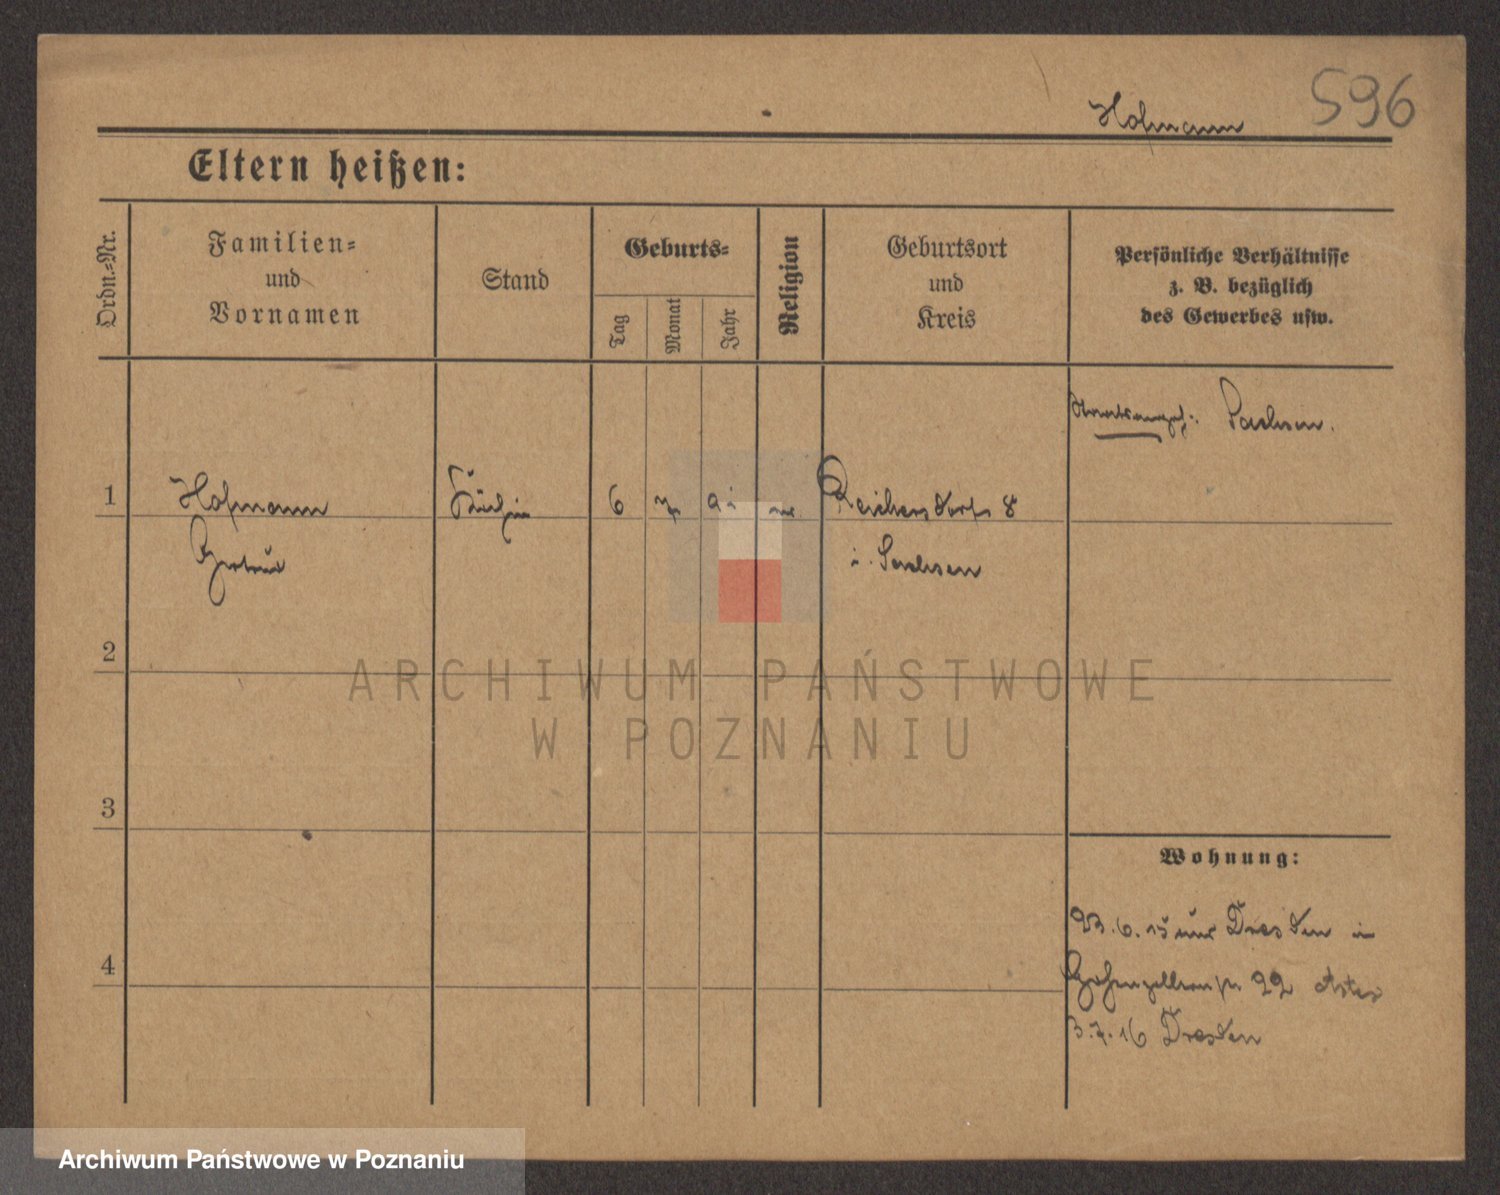 596
Hofmann
Eltern heißen:
Ordn.=Nr.
Familien=
und
Vornamen
Stand
Geburts=
Tag
Monat
Jahr
Religion
Geburtsort
und
Kreis
Persönliche Verhältnisse
z. B. bezüglich
des Gewerbes usw.
Staatsangeh: Sachsen.
1
Hofmann
6
7
Reichersdorf
Gertrud
i. Sachsen
2
ARCHIWUM PAŃSTWOWE
W POZNANIU
3
Wohnung:
23.6.15 aus Dresden in
4
Hohenzollernstr 22
3.7.16 Dresden
Archiwum Państwowe w Poznaniu